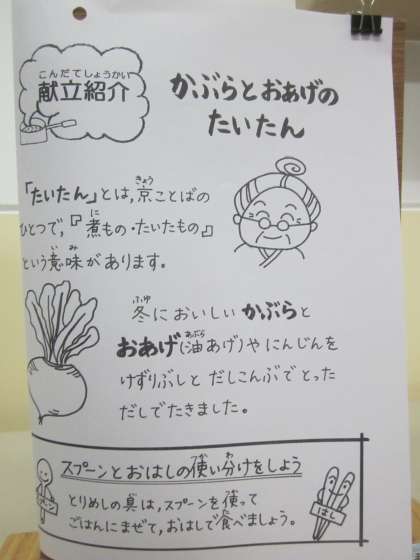 こんだてしょうかい
献立紹介
かぶらとおあげの
たいたん
「たいたん」とは、京ことばの
きょう
ひとつで、『煮もの・たいたもの』
に
という意味があります。
いみ
冬においしいかぶらと
ふゆ
おあげ(油あげ)やにんじんを
あぶら
けずりぶしとだしこんぶでとった
だしでたきました。
スプーンとおはしの使い分けをしよう
つか わ
とりめしの具は、スプーンを使って
ぐ つか
ごはんにまぜて、おはしで食べましょう。
た
はし